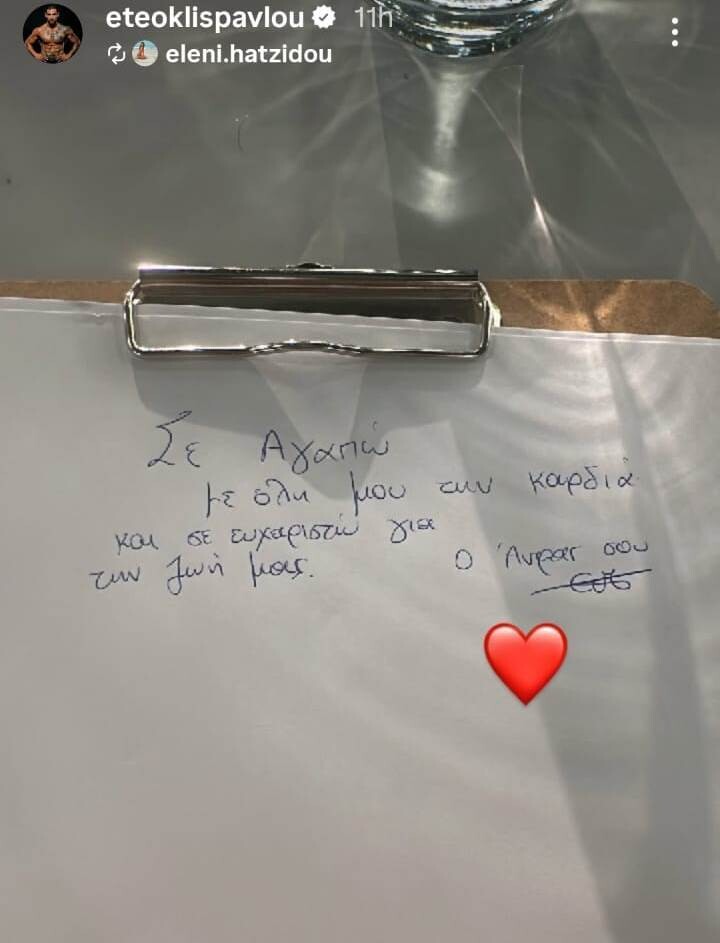 eteoklispavlou 11h
eleni.hatzidou
Σε Αγαπώ
με όλη μου την καρδιά
και σε ευχαριστώ για
την ζωή μας.
Ο Άντρας σου